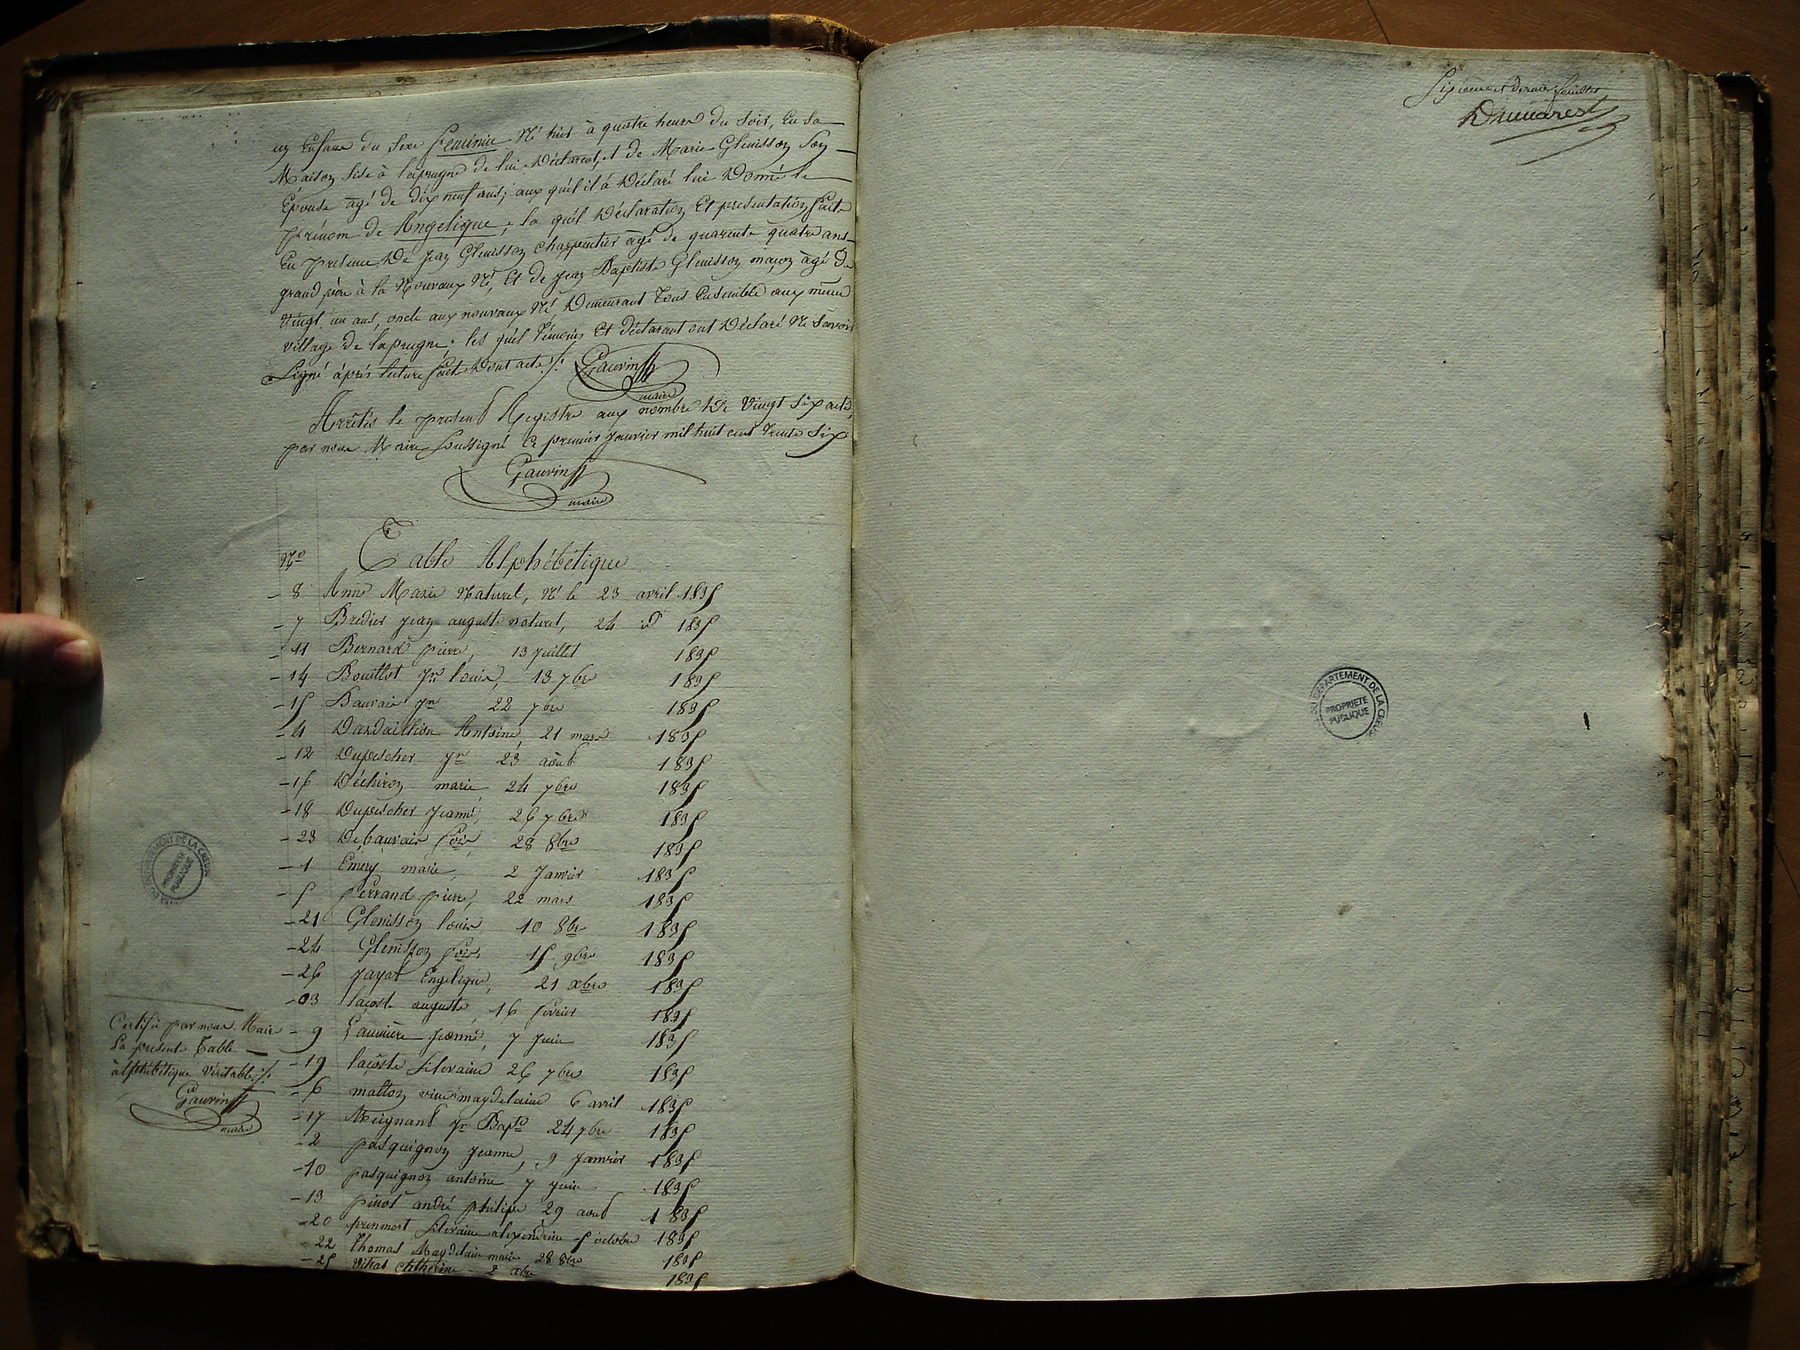 un Enfant du Sexe feminin Né hier à quatre heure du Soir, En sa
Maison Sise à laprugne de lui Déclarent, et de Marie Glenisson Son
Épouse agé de dix neuf ans; aux quél il à Déclaré lui Donné le
prénom de Angelique; la quél Déclaration Et presentation faite
En présence De Jean Glenisson charpentier âgé de quarente quatre ans
grand père à la Nouvaux Né, Et de Jean Baptiste Glenisson maçon âgé de
Vingt un ans, oncle aux nouvaux Né Demeurant Tous Ensemble aux même
village de laprugne. les quél Témoins Et déclarant ont Déclaré Ne Savoir
Signé áprés lecture faite Dont acte ./.
Gauvin
maire
Arrêtés le present Registre aux nombre De Vingt Six acte,
par nous Maire Soussigné le premier Janvier mil huit cent Trente Six
Gauvin
maire
No Table Alphébétique
- 8 Anne Marie Naturel, Né le 23 avril 1835
- 7 Bredier Jean auguste naturel, 24 id 1835
- 11 Bernard pierre, 13 Juillet 1835
- 14 Bouillot Jn louis, 13 7bre 1835
- 15 Bauvais Jn 22 7bre 1835
- 4 Dardaillion Antoine, 21 mars 1835
- 12 Dupescher Jn 23 août 1835
- 16 Déchiron marie 24 7bre 1835
- 18 Dupescher Jeanne, 26 7bre 1835
- 23 Debauvais fois 28 8bre 1835
- 1 Emery marie, 2 Janvier 1835
- 5 ferrand pierre, 22 mars 1835
- 21 Glenisson louis 10 8bre 1835
- 24 Glenisson fois, 15 9bre 1835
- 26 Jayat Engelique, 21 xbre 1835
- 03 lacoste auguste, 16 fevrier 1835
- 9 Laumière Jeanne, 7 Juin 1835
- 19 lacoste Silvaine 26 7bre 1835
- 6 malton magdelaine 6 avril 1835
- 17 Meignant Jn Bapte 24 7bre 1835
- 2 pasquignon Jeanne, 9 Janvier 1835
- 10 pasquignon antoine 7 Juin 1835
- 13 pinot andré philipe 29 août 1835
- 20 Silvaine alexendrine 5 octobre 1835
- 22 Thomas Magdelaine marie 28 8bre 1835
- 25 Vitas Cthérine - 2 xbre 1835
Certifié par nous Maire
La presente Table
alphébétique Véritable ./.
Gauvin
maire
DU DÉPARTEMENT DE LA CREUSE
PROPRIETE
PUBLIQUE
Sixieme et dernier feuillet
DU DÉPARTEMENT DE LA CREUSE
PROPRIETE
PUBLIQUE